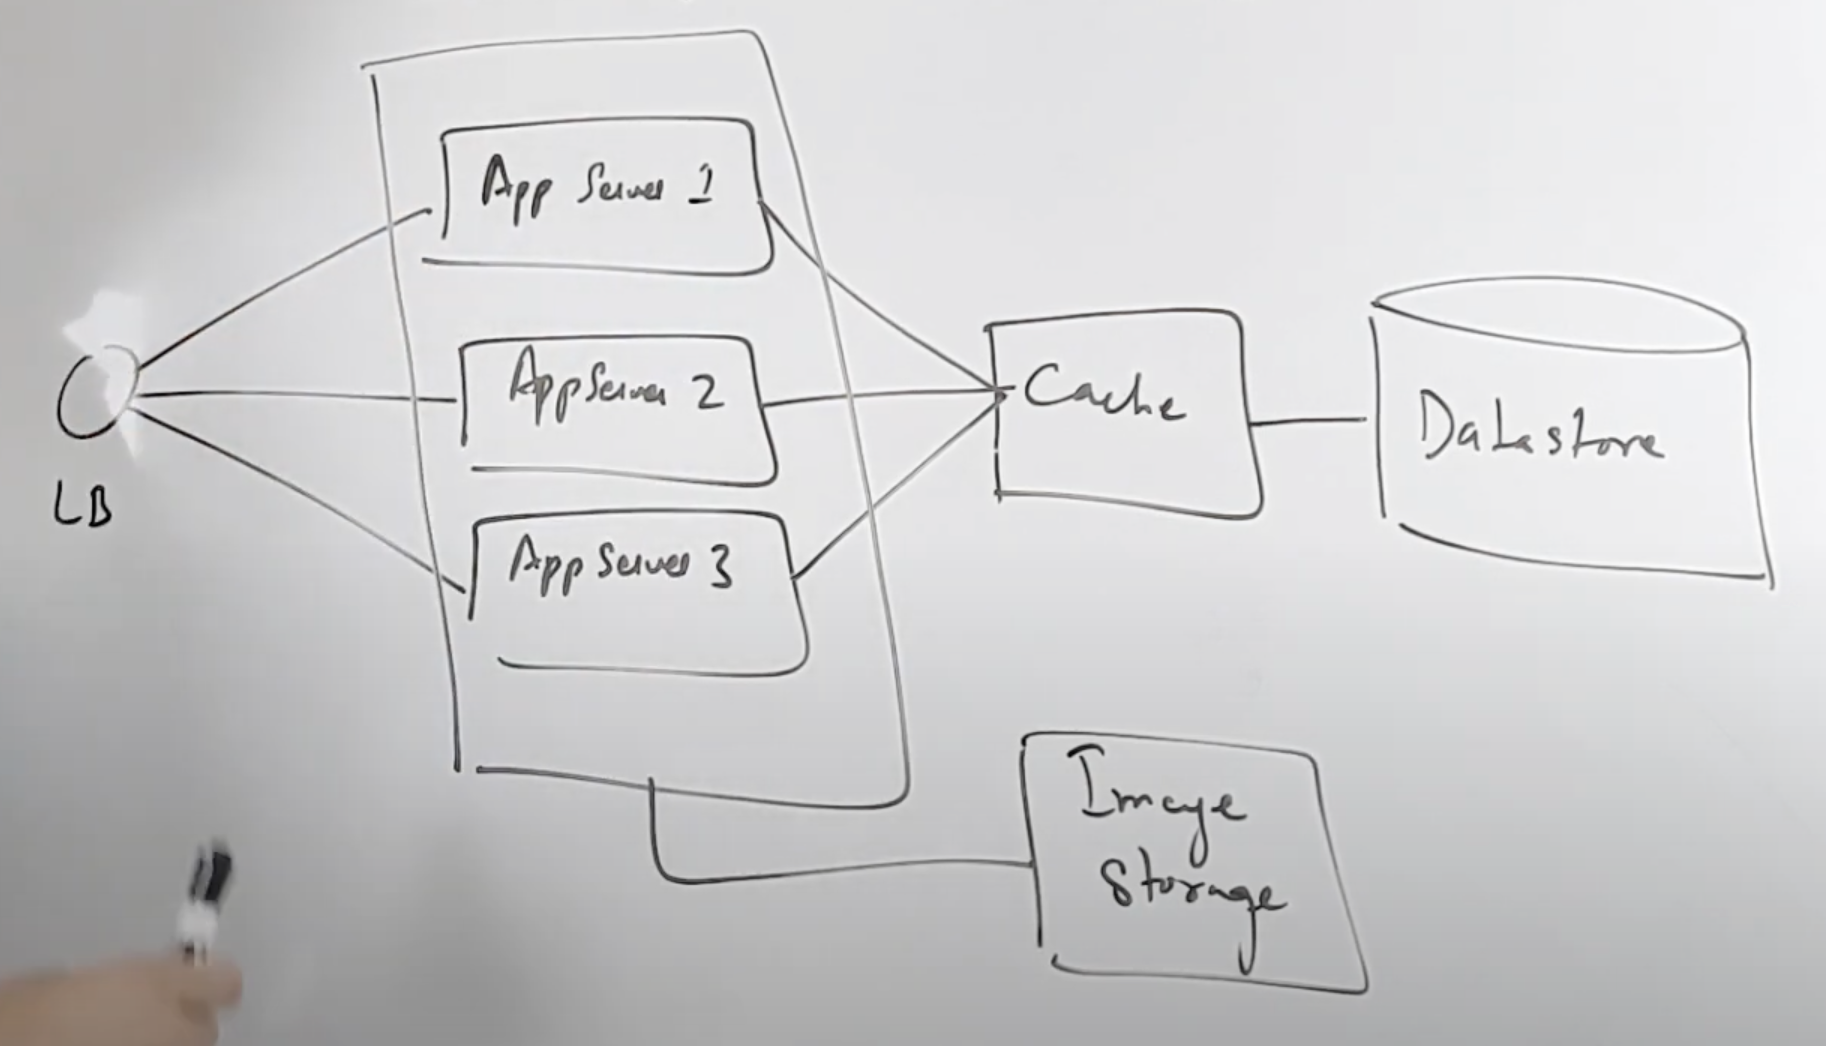 App Server 1
App Server 2
App Server 3
LB
Cache
Datastore
Image
Storage